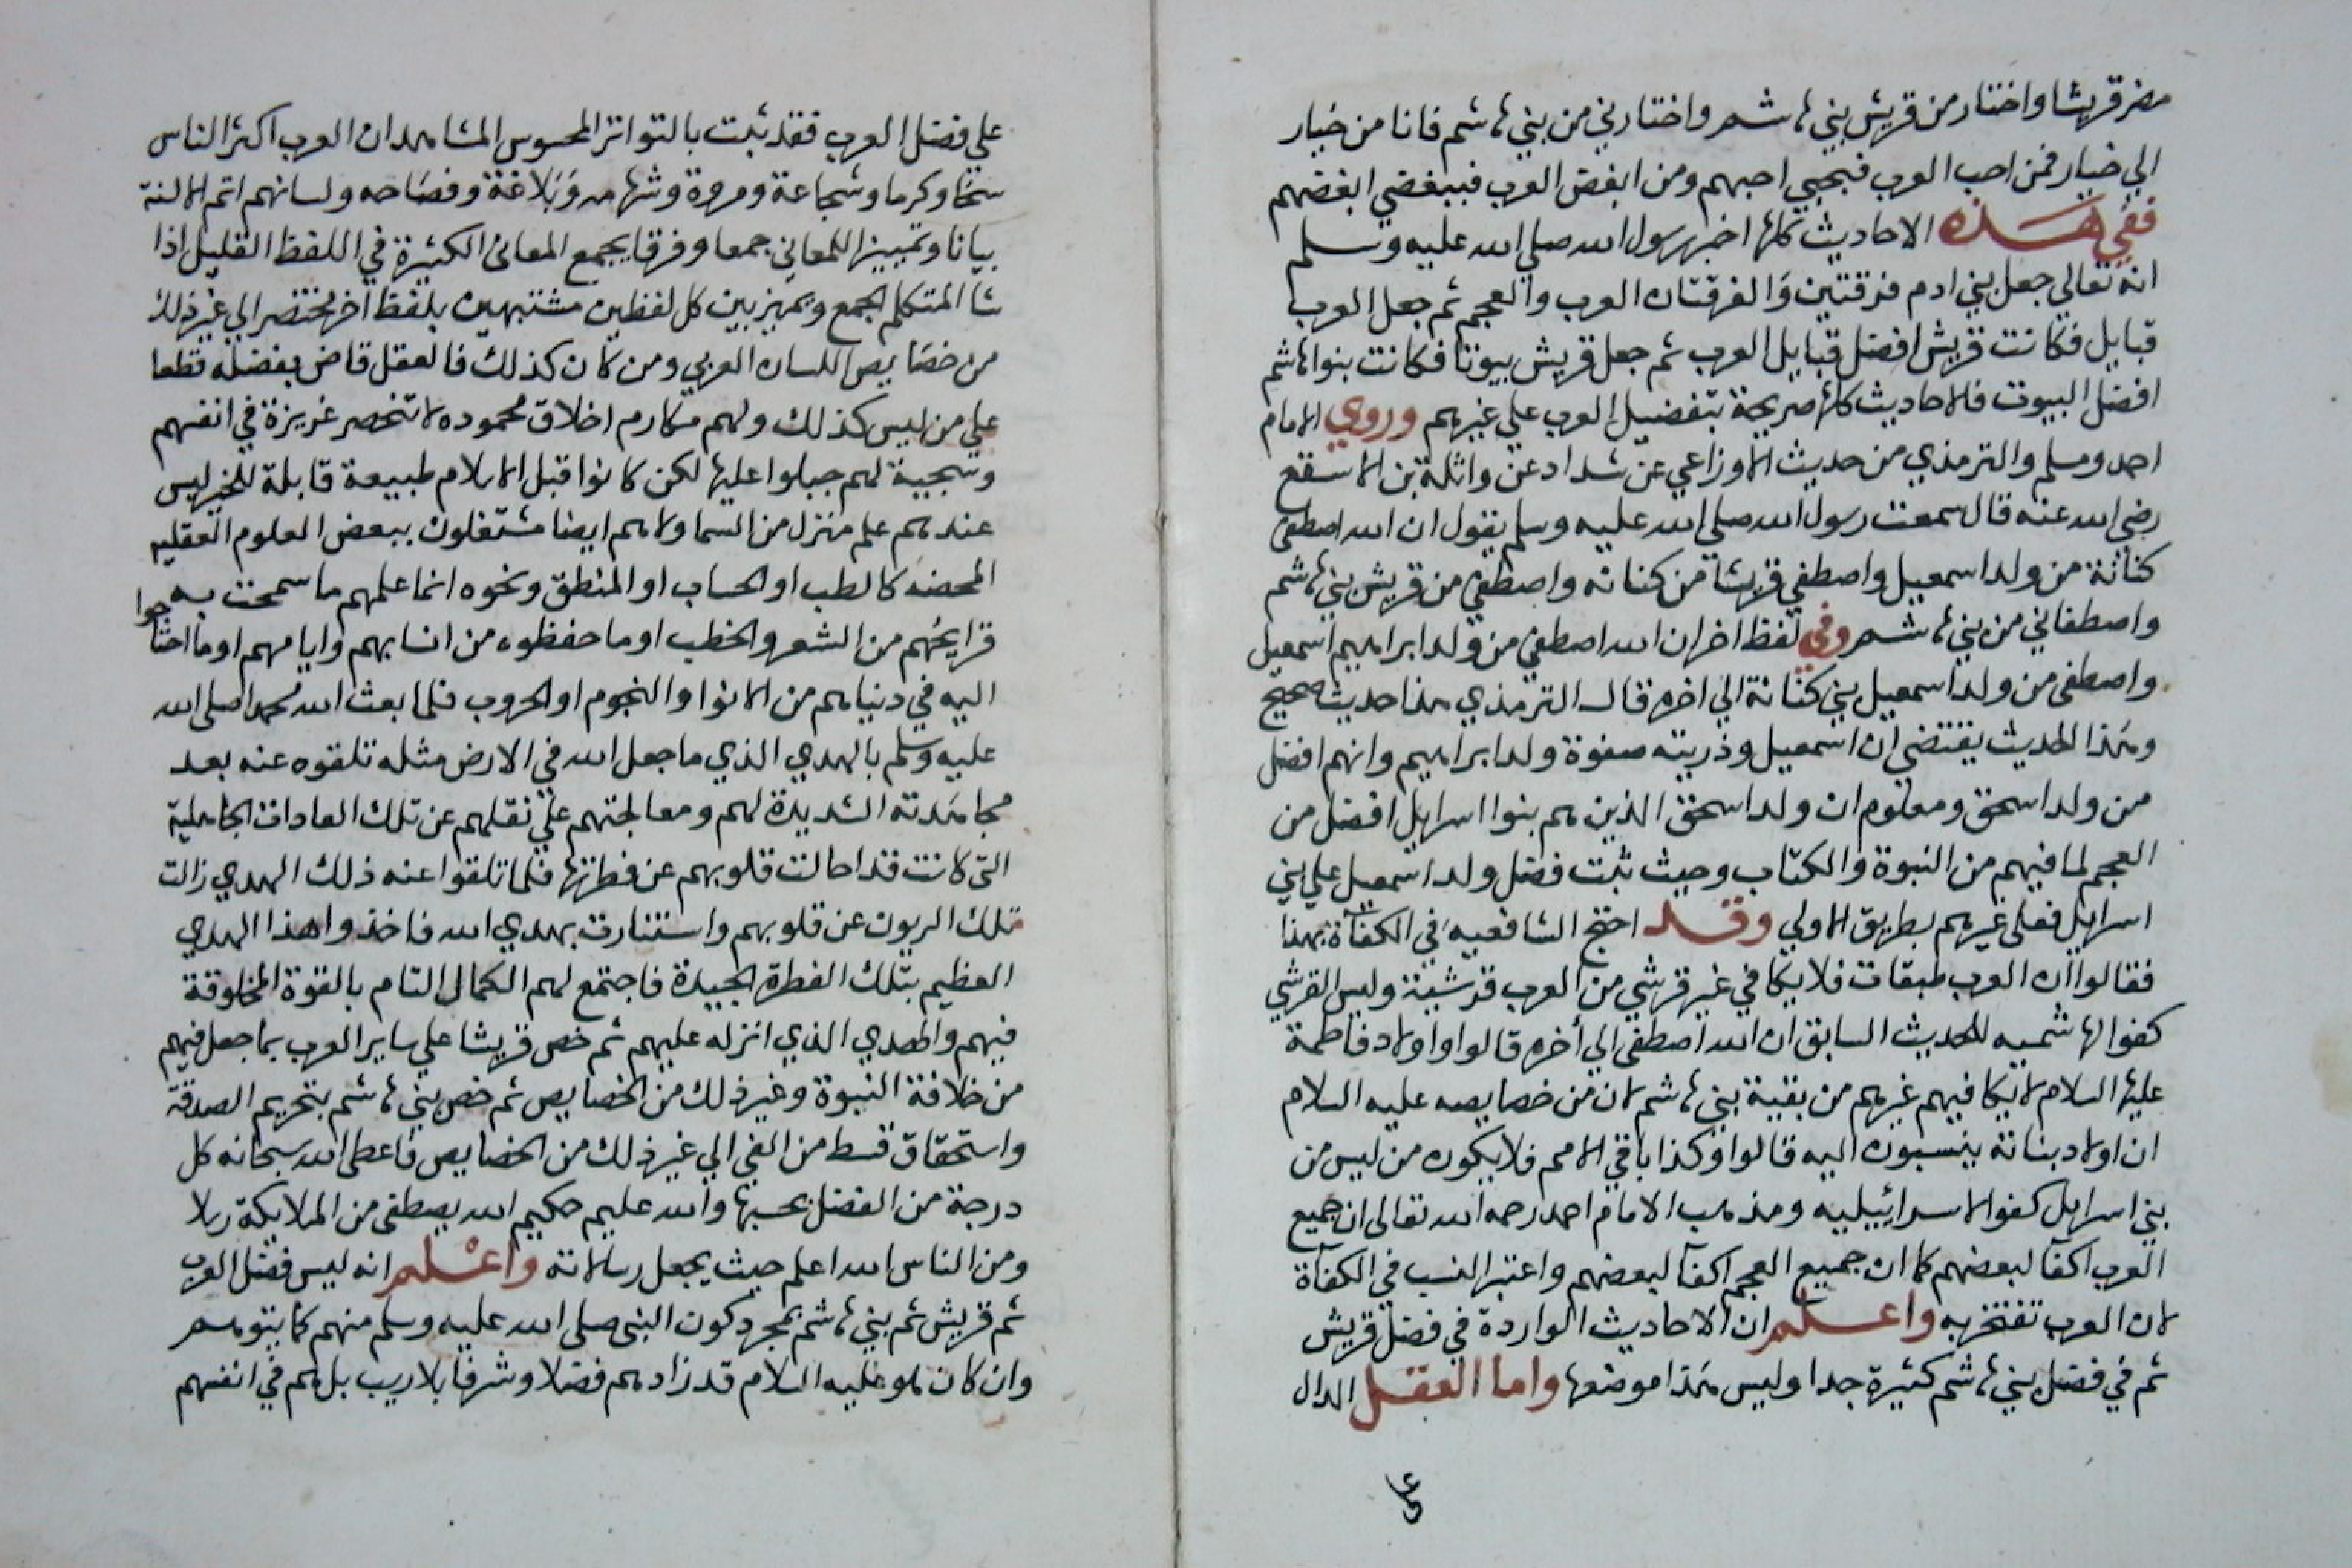 مضر قريشا واختار من قريش بني هاشم واختارني من بني هاشم فانا من خيار
الي خيار فمن احب العرب فبحبي احبهم ومن ابغض العرب فببغضي ابغضهم
ففي هذه الاحاديث كلها اخبر رسول الله صلي الله عليه وسلم
انه تعالي جعل بني ادم فرقتين والفرقتان العرب والعجم ثم جعل العرب
قبايل فكانت قريش افضل قبايل العرب ثم جعل قريش بيوتا فكانت بنوا هاشم
افضل البيوت فالاحاديث كلها صريحة بتفضيل العرب علي غيرهم وروي الامام
احمد ومسلم والترمذي من حديث الاوزاعي عن شداد عن واثلة بن الاسقع
رضي الله عنه قال سمعت رسول الله صلي الله عليه وسلم يقول ان الله اصطفي
كنانة من ولد اسمعيل واصطفي قريشا من كنانه واصطفي من قريش بني هاشم
واصطفاني من بني هاشم وفي لفظ اخر ان الله اصطفي من ولد ابراهيم اسمعيل
واصطفي من ولد اسمعيل بني كنانة الي اخره قال الترمذي هذا حديث صحيح
وهذا الحديث يقتضي ان اسمعيل وذريته صفوة ولد ابراهيم وانهم افضل
من ولد اسحق ومعلوم ان ولد اسحق الذين هم بنوا اسرايل افضل من
العجم لما فيهم من النبوة والكتاب وحيث ثبت فضل ولد اسمعيل علي بني
اسرايل فعلي غيرهم بطريق الاولي وقد احتج الشافعيه في الكفآة بهذا
فقالوا ان العرب طبقات فلا يكافي غير قرشي من العرب قرشية وليس القرشي
كفوا لهاشميه للحديث السابق ان الله اصطفي الي أخره قالوا واولاد فاطمة
عليها السلام لا يكافيهم غيرهم من بقية بني هاشم لان من خصايصه عليه السلام
ان اولاد بناته ينسبون اليه قالوا وكذا باقي الامم فلا يكون من ليس من
بني اسرايل كفوا لاسرائيليه ومذهب الامام احمد رحمه الله تعالي ان جميع
العرب اكفآ لبعضهم كما ان جميع العجم اكفآ لبعضهم واعتبر النسب في الكفآة
لان العرب تفتخر به واعلم ان الاحاديث الواردة في فضل قريش
ثم في فضل بني هاشم كثيرة جدا وليس هذا موضعها واما العقل الدال
علي
علي فضل العرب فقد ثبت بالتواتر المحسوس المشاهد ان العرب اكثر الناس
سخا وكرما وشجاعة ومروة وشهامه وبلاغة وفصاحه ولسانهم اتم الالسنة
بيانا وتمييزا للمعاني جمعا وفرقا يجمع المعاني الكثيرة في اللفظ القليل اذا
شا المتكلم الجمع ويميز بين كل لفظين مشتبهين بلفظ أخر مختصر الي غير ذلك
من خصايص اللسان العربي ومن كان كذلك فالعقل قاض بفضله قطعا
علي من ليس كذلك ولهم مكارم اخلاق محموده لا تنحصر غريزة في انفسهم
وسجية لهم جبلوا عليها لكن كانوا قبل الاسلام طبيعة قابلة للخير ليس
عندهم علم منزل من السما ولا هم ايضا مشتغلون ببعض العلوم العقليه
المحضه كالطب او الحساب او المنطق ونحوه انما علمهم ما سمحت به
قرايحهم من الشعر والخطب او ما حفظوه من انسابهم وايامهم او ما احتاجوا
اليه في دنياهم من الانوا والنجوم او الحروب فلما بعث الله محمدا صلي الله
عليه وسلم بالهدي الذي ما جعل الله في الارض مثله تلقوه عنه بعد
مجاهدته الشديدة لهم ومعالجتهم علي نقلهم عن تلك العادات الجاهلية
التي كانت قد احالت قلوبهم عن فطرتها فلما تلقوا عنه ذلك الهدي زالت
تلك الريون عن قلوبهم واستنارت بهدي الله فاخذوا هذا الهدي
العظيم بتلك الفطرة الجيدة فاجتمع لهم الكمال التام بالقوة المخلوقة
فيهم والهدي الذي انزله عليهم ثم خص قريشا علي ساير العرب بما جعل فيهم
من خلافة النبوة وغير ذلك من الخصايص ثم خص بني هاشم بتحريم الصدقة
واستحقاق قسط من الفي الي غير ذلك من الخصايص فاعطي الله سبحانه كل
درجة من الفضل بحسبها والله عليم حكيم الله يصطفي من الملايكة رسلا
ومن الناس الله اعلم حيث يجعل رسالاته واعلم انه ليس فضل العرب
ثم قريش ثم بني هاشم بمجرد كون النبي صلي الله عليه وسلم منهم كما يتوهم
وان كان هو عليه السلام قد زادهم فضلا وشرفا بلا ريب بل هم في انفسهم